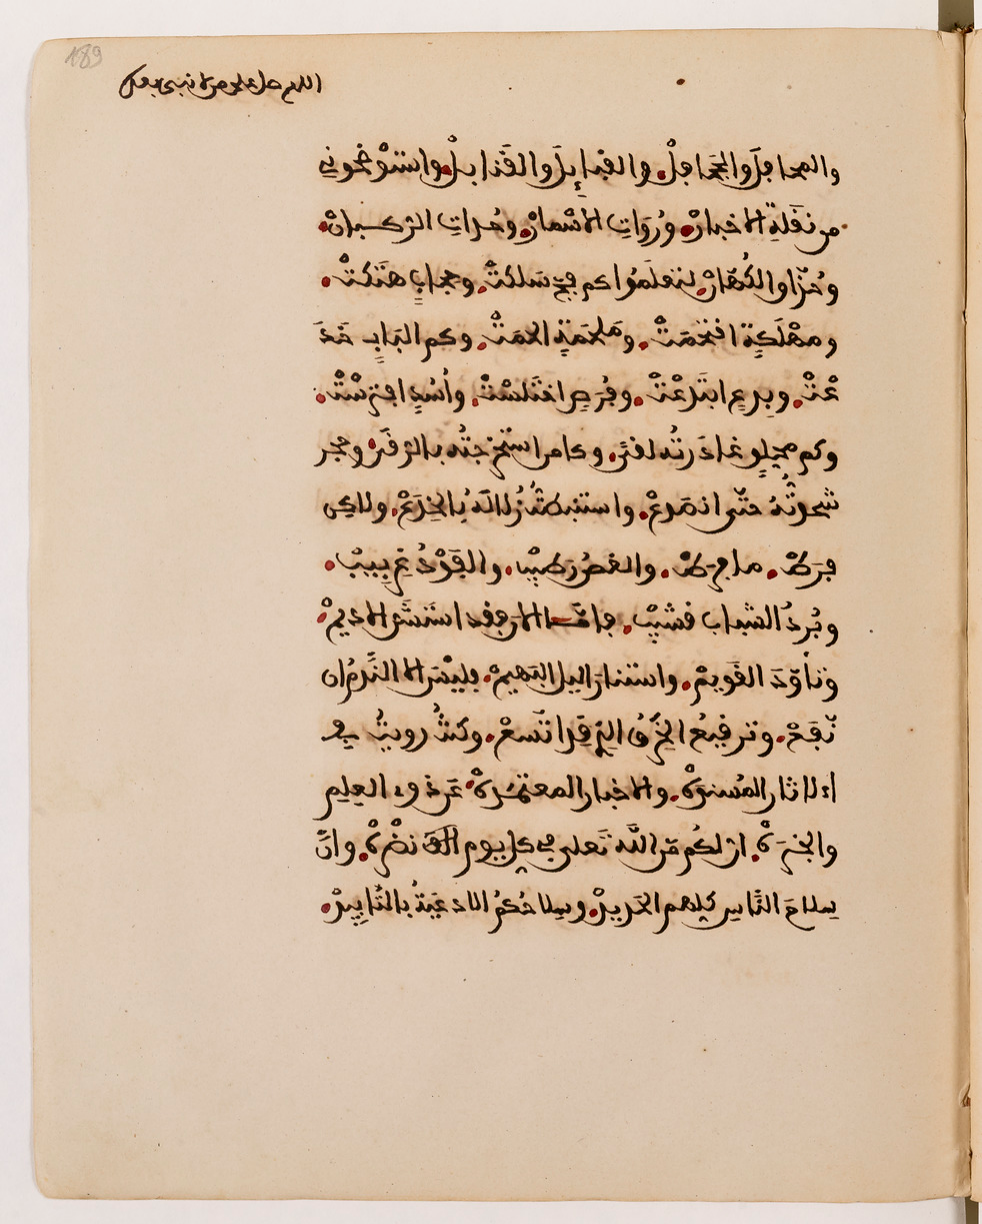 اللهم صل على من لا نبي بعده
والمحافِلَ والجحَافِلْ. والقبَايِلَ والقَنابلْ. واستوْضحُوني
من نقَلةِ الاخبارْ. ورُوَاتِ الاسْمارْ. وحُداتِ الرّكبانْ.
وحُذّاو الكُهّانْ. لتعلَمُوا كم فجٍ سَلكتْ. وحِجابٍ هتَكتْ.
ومهْلَكةٍ اقتحَمتْ. ومَلحَمَةٍ الحَمتْ. وكم البَابٍ خَدَ
عْتْ. وبِدعٍ ابتَدعْتْ. وفُرَصٍ اختَلسْتْ. وأُسْدٍ افترَسْتْ.
وكم محلِوٍ غادَرتُه لقىً. وكامن استَخرجتُه بالرّقَى. وحجر
شحذتُهُ حتّى انصَدعْ. واستنبطتُ زُلالَهُ بالخِدَعْ. ولاكِن
فرَطْ. ما فرَطْ. والغصْنُ رَطِيبْ. والفَوْدُ غِرْبِيبْ.
وبُردُ الشباب قشيبْ. فاما الان وقد استَشنَّ الاديمْ.
وتأوّدَ القَويمْ. واستنارَ اليل البَهيمْ. فليْسَ الا النَّدمُ ان
نّفَعْ. وترقيعُ الخَرْقِ الذِي قد اتّسعْ. وكنتُ رويتُ من
الاثار المُسندهْ. والاخبار المعتمَدهْ. عَن ذوى العِلم
والخبرَهْ. ان لكُم مّن اللَّه تَعلى في كل يوم نظْرهْ. وانّ
سِلاحَ النَّاسِ كلهم الحَديدْ. وسِلاحُكمُ الادعيَةُ